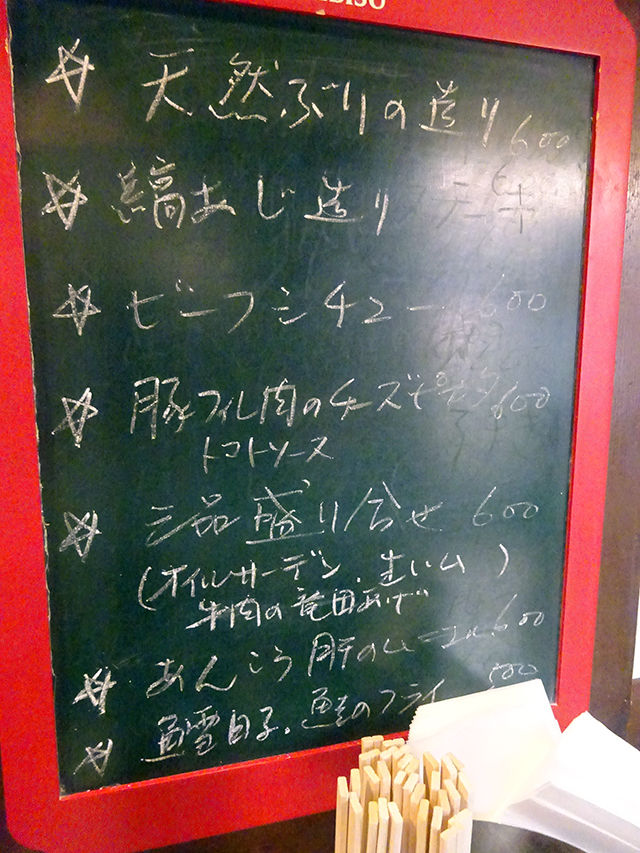 ☆ 天然ぶりの造り 600
☆ 縞あじ造り
☆ ビーフシチュー 600
☆ 豚フィレ肉のチーズ 600
トマトソース
☆ 三品盛り合せ 600
(オイルサーデン、生ハム)
牛肉の竜田あげ
☆ あんこう肝のムニエル 600
☆ 鱈白子、鮭のフライ